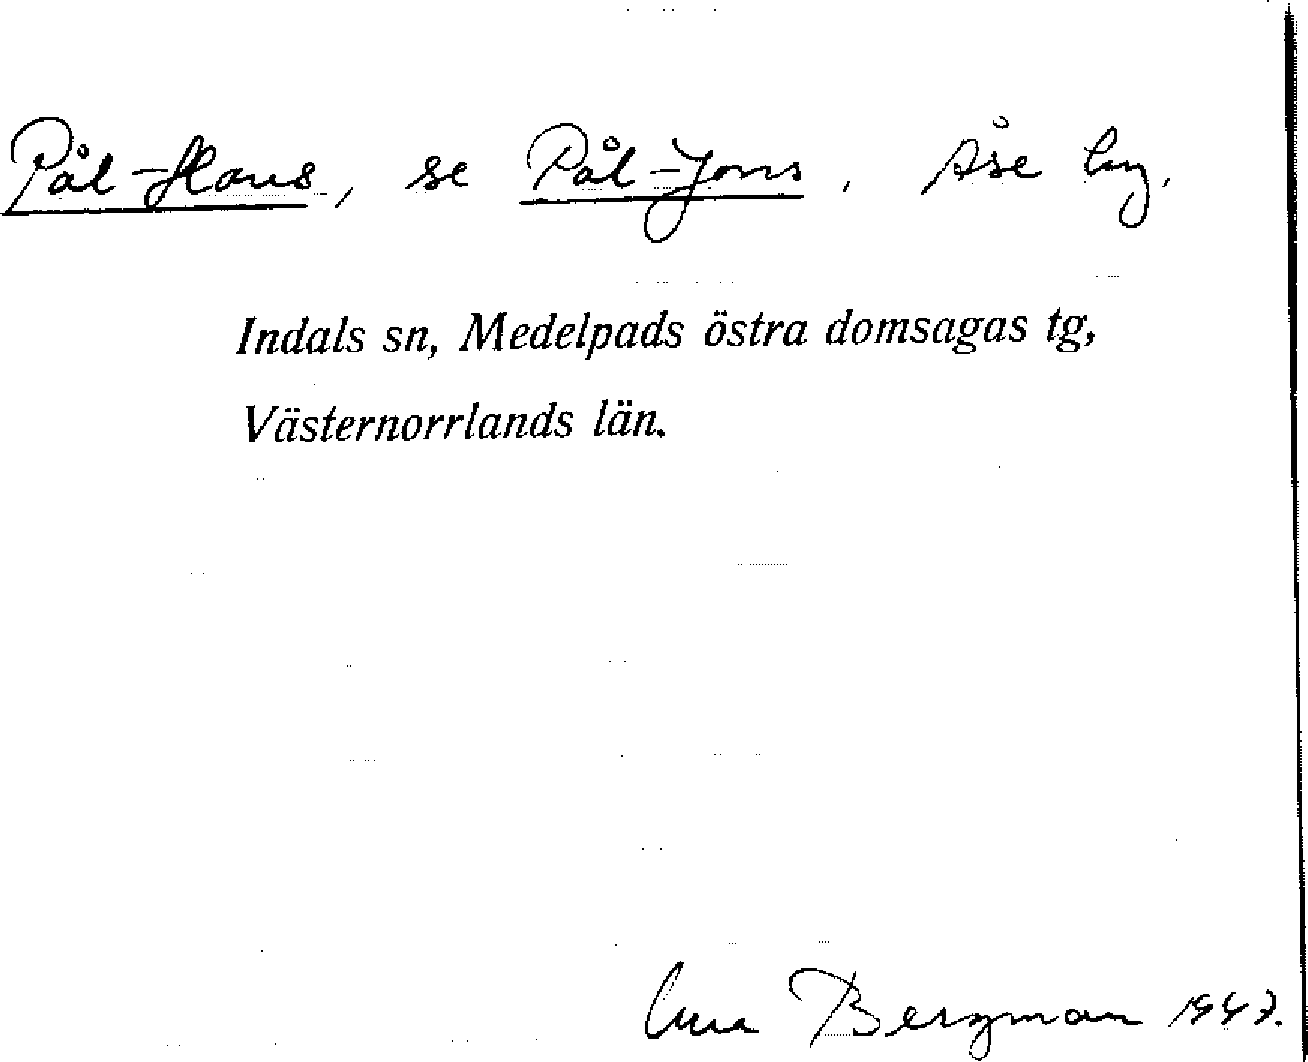 Pål-Hans, se Pål-Jons, Åse by.
Indals sn, Medelpads östra domsagas tg,
Västernorrlands län.
Bergman 1947.